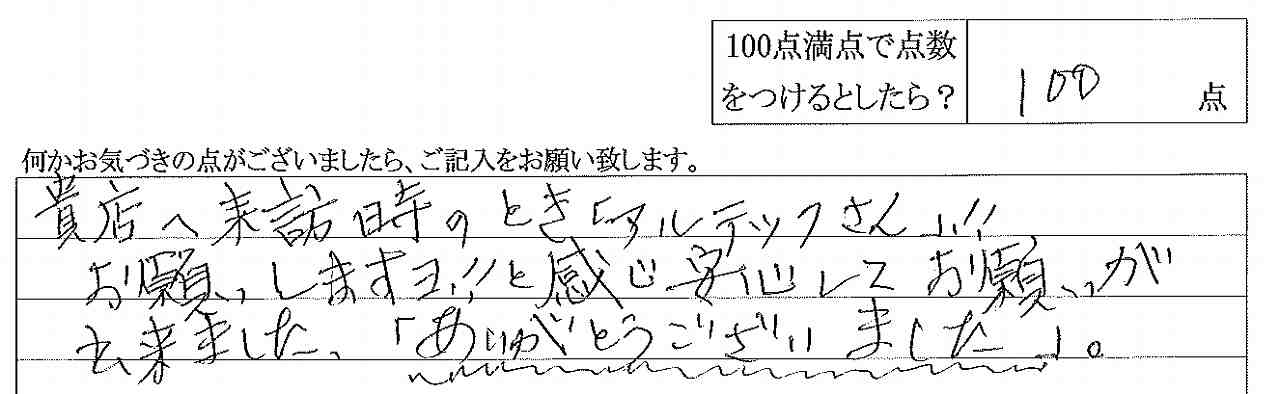 100点満点で点数
をつけるとしたら？
100 点
何かお気づきの点がございましたら、ご記入をお願い致します。
貴店へ来訪時のとき「アルテックさん」!!
お願いしますヨ!!と感じ安心してお願いが
出来ました、「ありがとうございました」。